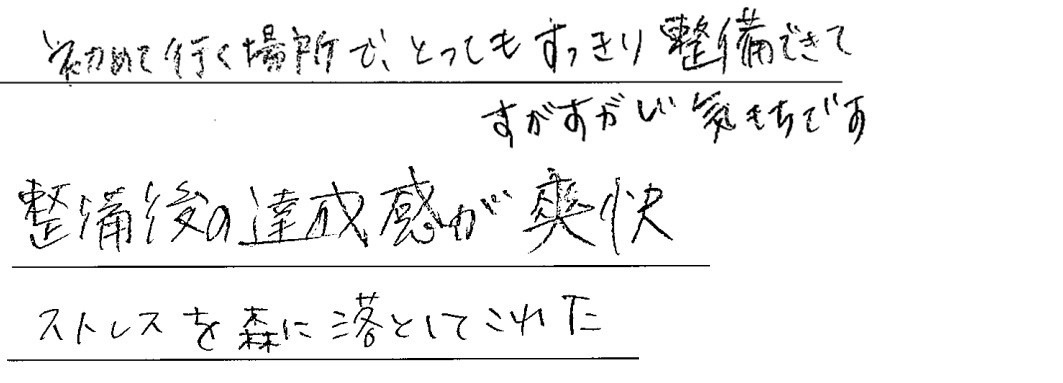 初めて行く場所で、とってもすっきり整備できて
すがすがしい気もちです
整備後の達成感が爽快
ストレスを森に落としてこれた